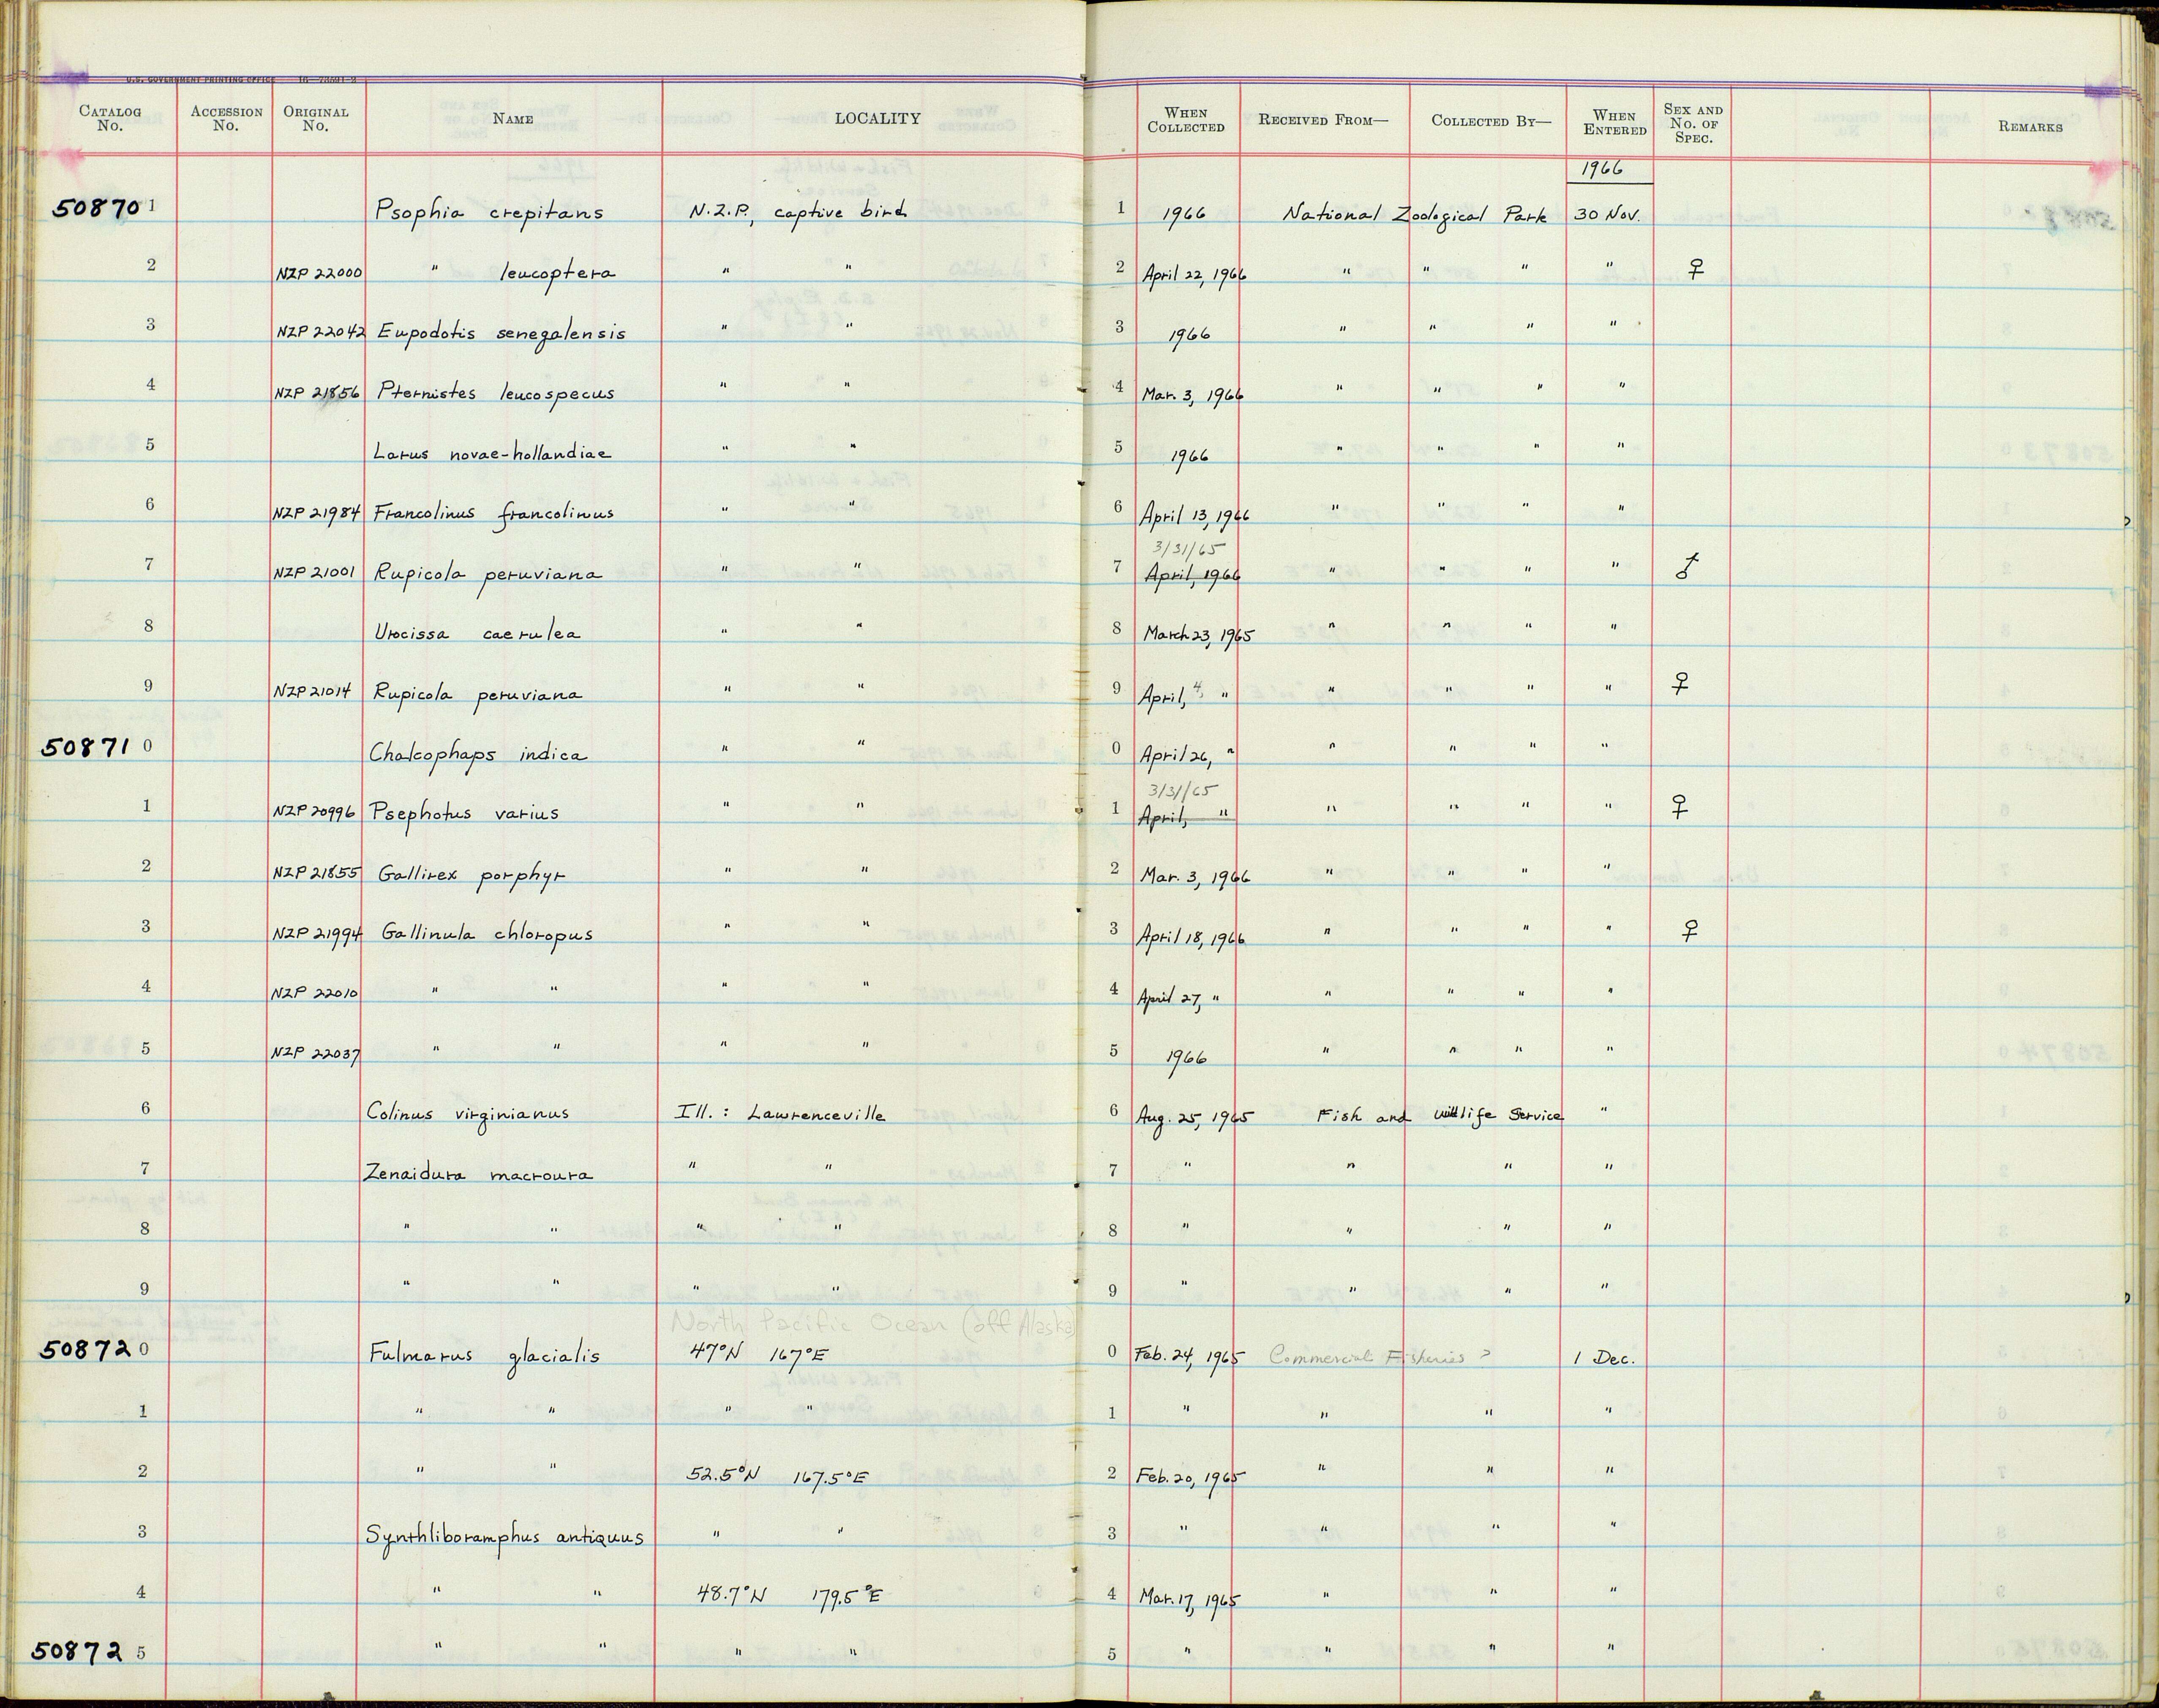 U.S. GOVERNMENT PRINTING OFFICE 16—73591-2
CATALOG No. ACCESSION No. ORIGINAL No. NAME LOCALITY WHEN COLLECTED RECEIVED FROM— COLLECTED BY— WHEN ENTERED SEX AND No. OF SPEC. REMARKS
1966
50870 1 Psophia crepitans N.Z.P., captive bird 1 1966 National Zoological Park 30 Nov.
2 NZP 22000 " leucoptera " " 2 April 22, 1966 " " " " ♀
3 NZP 22042 Eupodotis senegalensis " " 3 1966 " " " "
4 NZP 21856 Pternistes leucospecus " " 4 Mar. 3, 1966 " " " "
5 Larus novae-hollandiae " " 5 1966 " " " "
6 NZP 21984 Francolinus francolinus " " 6 April 13, 1966 " " " "
3/31/65
7 NZP 21001 Rupicola peruviana " " 7 April, 1966 " " " " ♂
8 Urocissa caerulea " " 8 March 23, 1965 " " " "
9 NZP 21014 Rupicola peruviana " " 9 April, 4, " " " " " ♀
50871 0 Chalcophaps indica " " 0 April 26, " " " " "
3/31/65
1 NZP 20996 Psephotus varius " " 1 April, " " " " " ♀
2 NZP 21855 Gallirex porphyr " " 2 Mar. 3, 1966 " " " "
3 NZP 21994 Gallinula chloropus " " 3 April 18, 1966 " " " " ♀
4 NZP 22010 " " " " 4 April 27, " " " " "
5 NZP 22037 " " " " 5 1966 " " " "
6 Colinus virginianus Ill.: Lawrenceville 6 Aug. 25, 1965 Fish and Wildlife Service "
7 Zenaidura macroura " " 7 " " " "
8 " " " " 8 " " " "
9 " " " " 9 " " " "
North Pacific Ocean (off Alaska)
50872 0 Fulmarus glacialis 47°N 167°E 0 Feb. 24, 1965 Commercial Fisheries ? 1 Dec.
1 " " " " 1 " " " "
2 " " 52.5°N 167.5°E 2 Feb. 20, 1965 " " "
3 Synthliboramphus antiquus " " 3 " " " "
4 " " 48.7°N 179.5°E 4 Mar. 17, 1965 " " "
50872 5 " " " " 5 " " " "